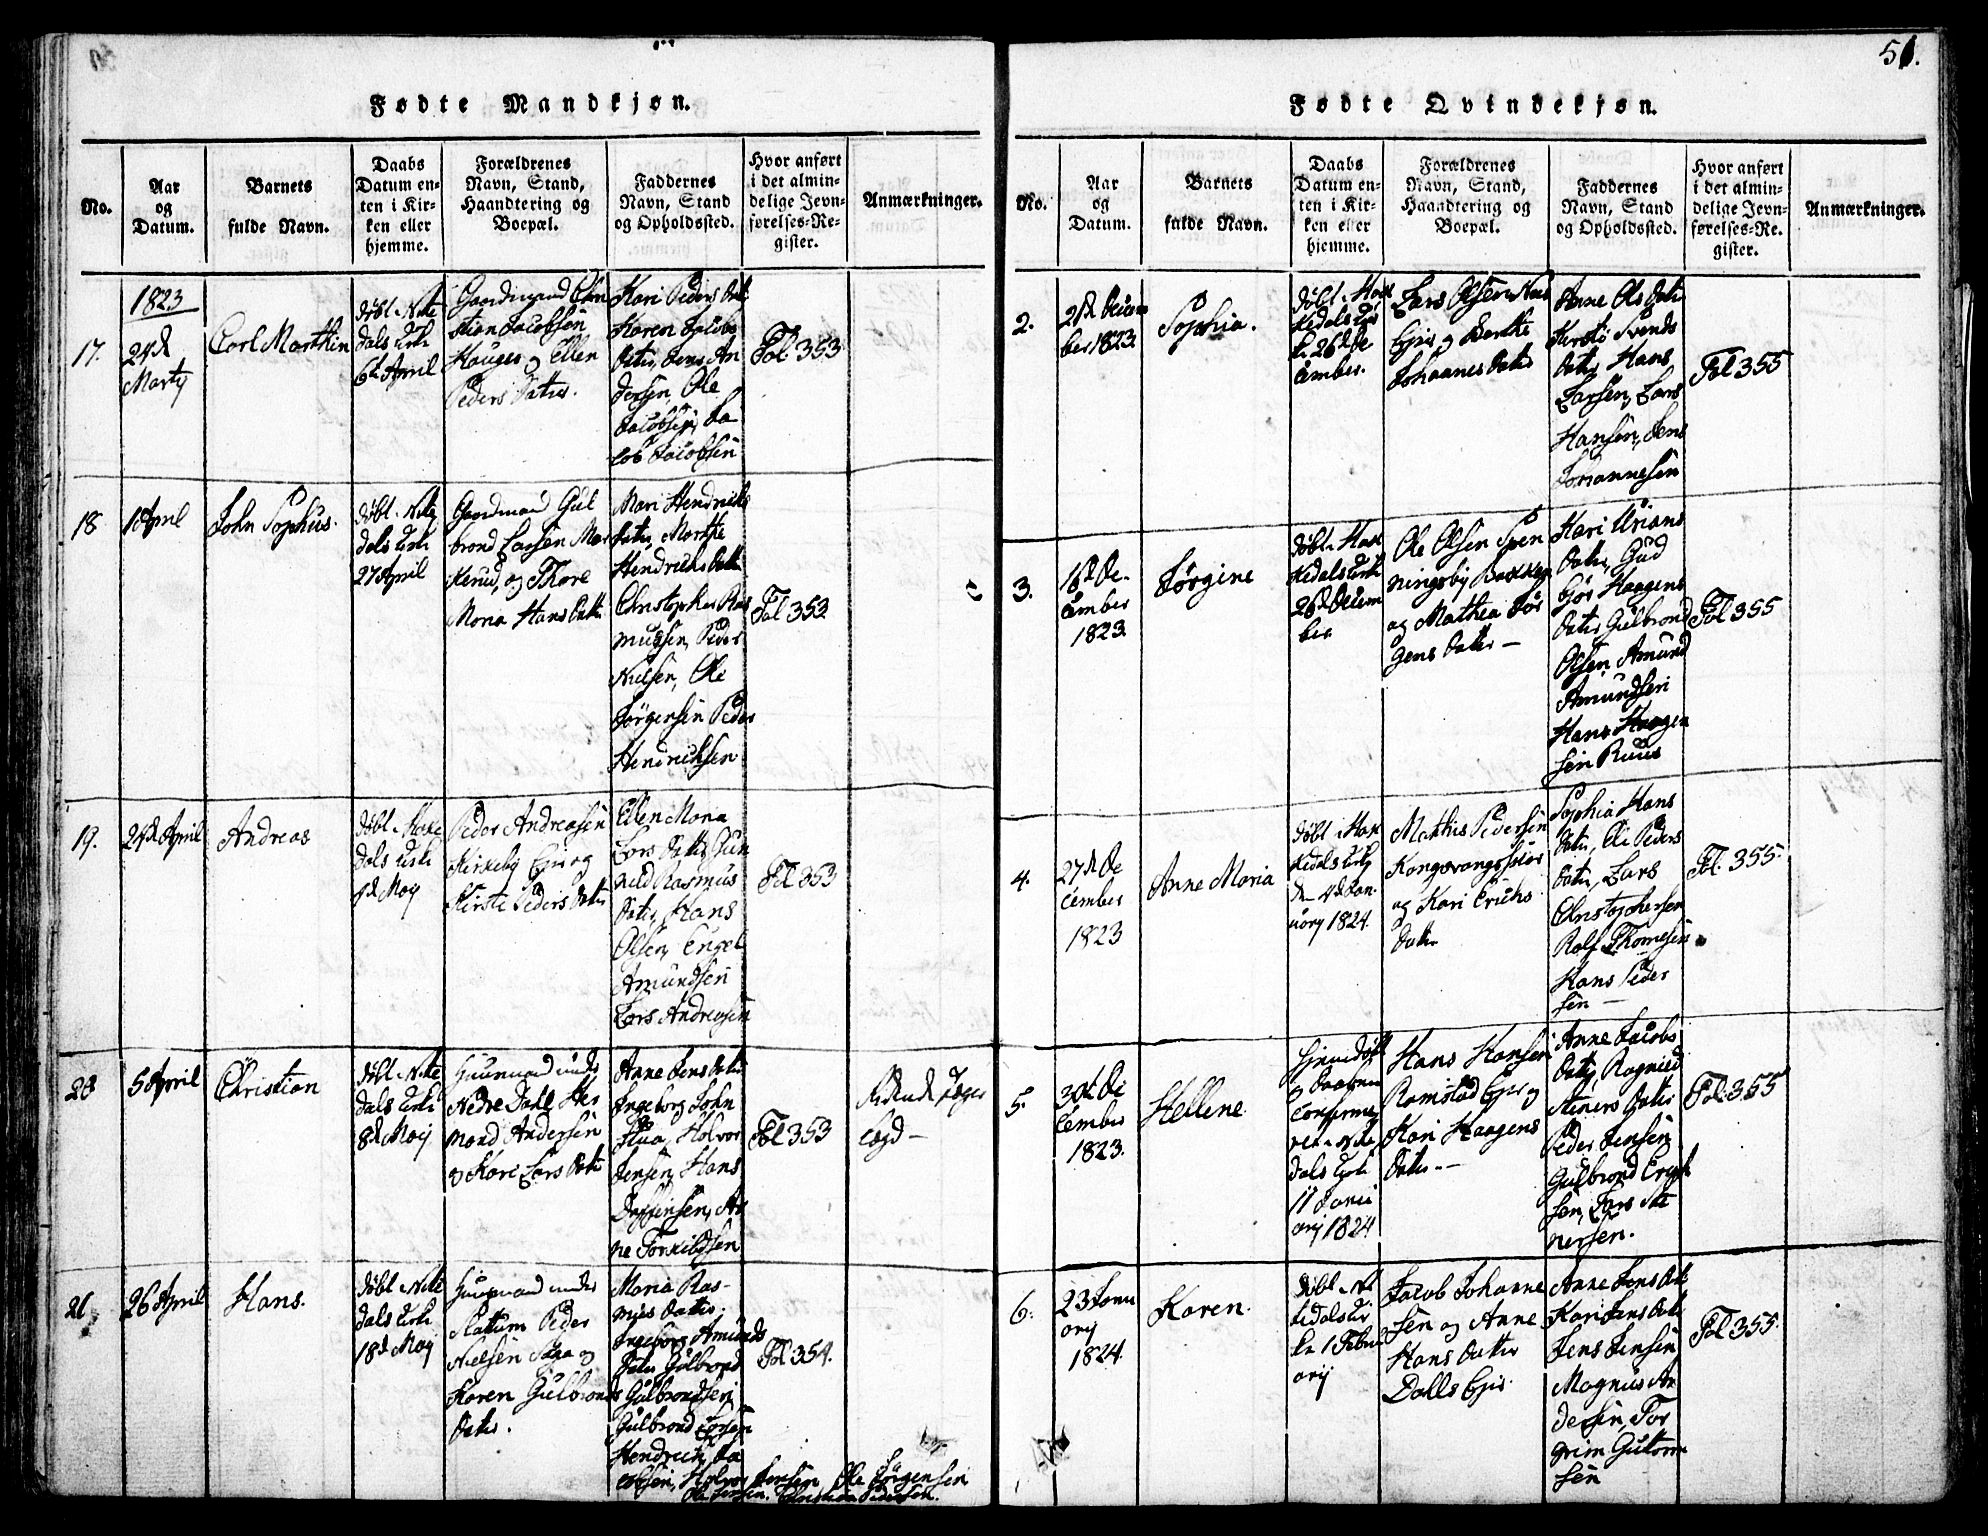 51.
Fødte Mandkjøn.
No.
Aar
og
Datum.
Barnets
fulde Navn.
Daabs
Datum en-
ten i Kir-
ken eller
hjemme.
Forældrenes
Navn, Stand,
Haandtering og
Boepæl.
Faddernes
Navn, Stand
og Opholdssted.
Hvor anført
i det almin-
delige Jevn-
førelses-Re-
gister.
Anmærkninger.
17.
1823
24d
Martij
Carl Marthin
døbt i Nite
dals Kirke
6te April
Gaardmand Chri
stian Jacobsen
Hauger og Ellen
Peders Datter.
Kari Peders Dat.
Karen Jacobs
Datter, Jens An
dersen, Ole
Jacobsen, Ja
cob Jacobsen
Fol 353
18
1 April
John Sophus.
døbt i Nite
dals Kirke
27 April
Gaardmand Gul
brand Larsen
og Thore
Maria Hans Datt.
Mari Hendriks
Datter, Marthe
Hendrichs Datt
Christopher Ras
mussen, Peder
Nielsen, Ole
Jørgensen Peder
Hendrichsen
Fol 353
19.
24d April
Andreas
døbt i Hake
dals Kirke
4d Maij
Peder Andreasen
Kirkeby Eyer og
Kirsti Peders Datter
Ellen Maria
Lars Datter, Gun
hild Rasmus
Datter, Hans
Olsen, Engel
Amundsen
Lars Andreasen
Fol 353
20
5 April
Christian
døbt i Nite
dals Kirke
8d Maij
Huusmand under
Nedre Dahl Her
mand Andersen
og Kari Lars Datter
Anne Jens Datter
Ingeborg John
Halvor
Jensen, Hans
An
ne Torkildsen
Fol 353
21
26 April
Hans.
døbt i Nite
dals Kirke
18d Maij
Huusmand under
Slattum Peder
Nielsen og
Karen Gulbrands
Datter.
Maria Ras-
mus Datter,
Ingeborg Amunds
Datter Gulbrand
Gulbrandsen
Gulbrand Larsen
Hendrich Ja
cobsen, Halvor Jensen, Ole Jørgensen
Ole Jensen. Christian Pedersen.
Fol 354.
Fødte Qvindekjøn.
No.
Aar
og
Datum.
Barnets
fulde Navn.
Daabs
Datum en-
ten i Kir-
ken eller
hjemme.
Forældrenes
Navn, Stand,
Haandtering og
Boepæl.
Faddernes
Navn, Stand
og Opholdssted.
Hvor anført
i det almin-
delige Jevn-
førelses-Re-
gister.
Anmærkninger.
2.
21d Decem
ber 1823
Sophia.
døbt i Hak
kedals Kir
ke 26d De
cember.
Lars Olsen
Eyer og Berthe
Johannes Datter
Anne Ols Datter
Kersti Svends
Datter, Hans
Larsen, Lars
Hansen, Jens
Johannesen
Fol 355
3.
16d De-
cember
1823
Jørgine
døbt i Hak
kedals Kirke
26d Decem
ber
Ole Olsen Sven
ningsby Bakken
og Mathea Jør
gens Datter –
Kari Urians
Datter, Gud
bjør Haagens
Datter Gulbrand
Olsen Amund
Amundsen
Hans Haagen
sen Ruus
Fol 355
4.
27d De
cember
1823
Anne Maria
døbt i Hak
kedals Kirke
d – 4d Jan-
uary 1824
Mathis Pedersen
og Kari Erichs
Datter
Sophia Hans
Datter, Eli Peders
Datter, Lars
Christophersen
Rolf Thomesen
Hans Peder
sen –
Fol. 355.
5.
30d De
cember
1823.
Hellene
Hjemmedøbt
og Daaben
Confirme
ret i Nite
dals Kirke
11 Janu
arij 1824
Hans Hansen
Ramstad Eyer og
Kari Haagens
Datter. –
Anne Jacobs
Datter, Ragnild
Steners Datter
Peder Jensen
Gulbrand Erich
sen, Lars Ste
nersen.
Fol. 355
6.
23 Janu
arij
1824.
Karen.
døbt i Ni
tedals Kir
ke 1 Febru
arij
Jacob Johanne
sen og Anne
Hans Datter
Dalls Eyer.
Anne Jens Dat.
Kari Jens Datt
Jens Jensen
Magnus An
dersen, Tor
grim Guttorm
sen
Fol 355.